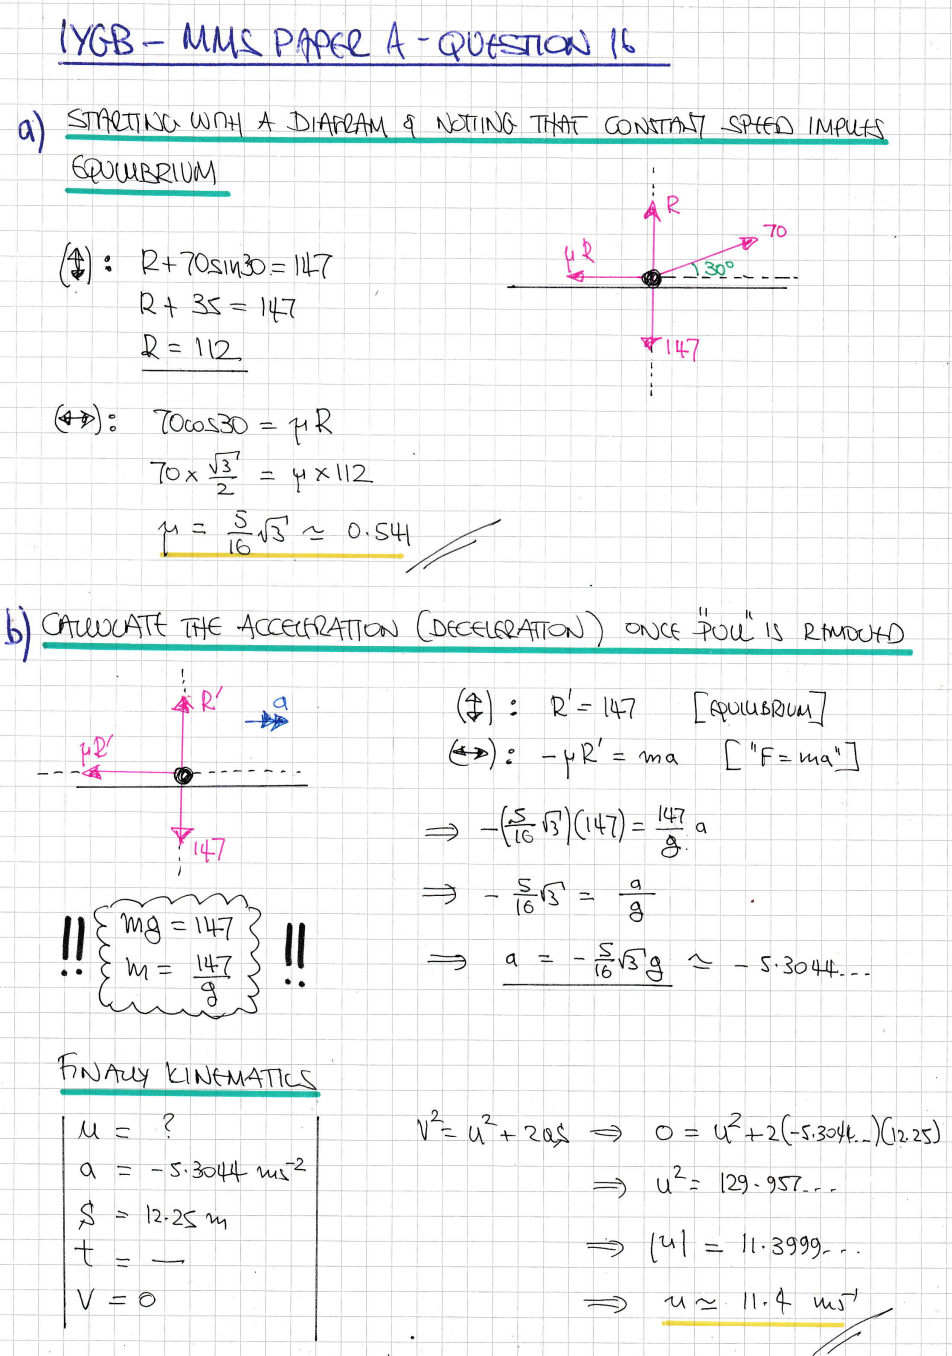 IYGB - MMS PAPER A - QUESTION 16
a) STARTING WITH A DIAGRAM & NOTING THAT CONSTANT SPEED IMPLIES
EQUILIBRIUM
(↕): R+70sin30 = 147
R + 35 = 147
R = 112
R
μR
70
30°
147
(↔): 70cos30 = μR
70 × √3/2 = μ × 112
μ = 5/16 √3 ≃ 0.541
b) CALCULATE THE ACCELERATION (DECELERATION) ONCE "PULL" IS REMOVED
R'
a
μR'
147
(↕): R' = 147 [EQUILIBRIUM]
(↔): -μR' = ma ["F = ma"]
⇒ -(5/16 √3)(147) = 147/g a
⇒ - 5/16 √3 = a/g
⇒ a = - 5/16 √3 g ≃ - 5.3044...
!! mg = 147 !!
m = 147/g
FINALLY KINEMATICS
u = ?
a = -5.3044 ms⁻²
s = 12.25 m
t = —
V = 0
V² = u² + 2as ⇒ 0 = u² + 2(-5.3044...)(12.25)
⇒ u² = 129.957...
⇒ |u| = 11.3999...
⇒ u ≃ 11.4 ms⁻¹